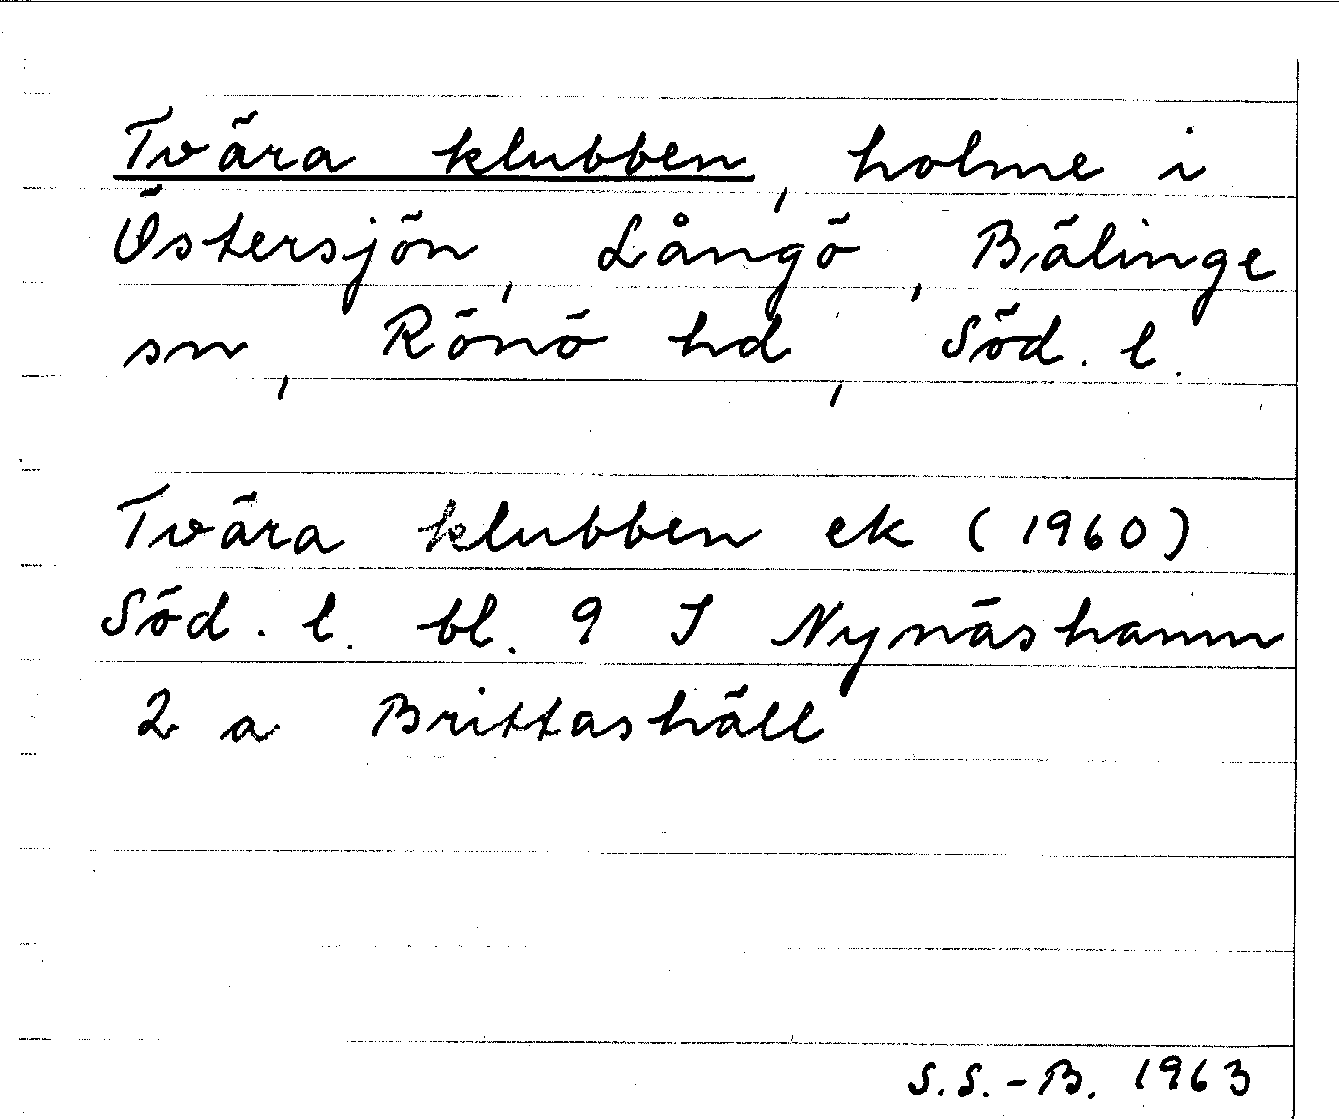 Tvära klubben, holme i
Östersjön, Långö, Bälinge
sn, Rönö hd, Söd. l.
Tvära klubben ek (1960)
Söd. l. bl. 9 I Nynäshamn
2 a Brittashäll
S.S.-B. 1963